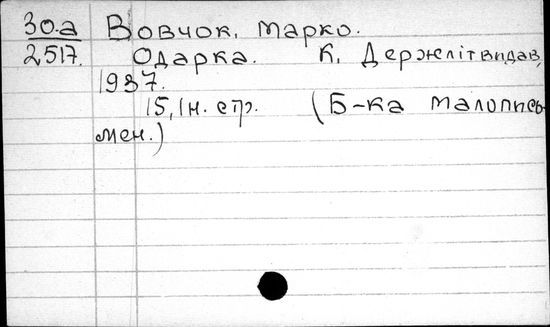 30.a Вовчок, Марко.
2517. Одарка. К, Держлітвидав,
1937.
15, Iн. стр. (Б-ка малопись-
мен.)